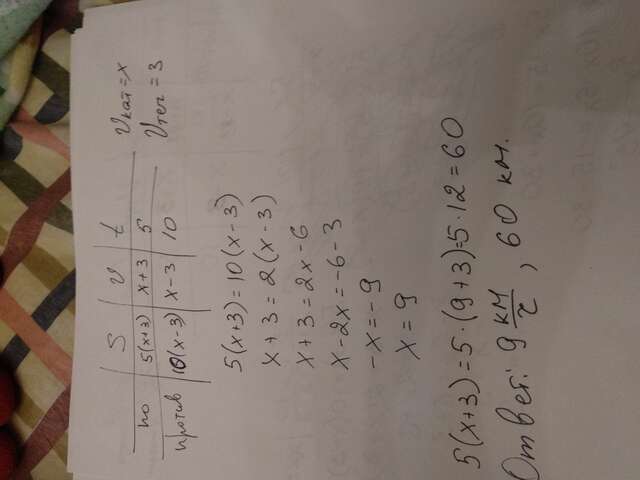 S V t
по 5(x+3) x+3 5
против 10(x-3) x-3 10
Vкат=x
Vтеч=3
5(x+3)=10(x-3)
x+3=2(x-3)
x+3=2x-6
x-2x=-6-3
-x=-9
x=9
5(x+3)=5·(9+3)=5·12=60
Ответ: 9 км/г, 60 км.